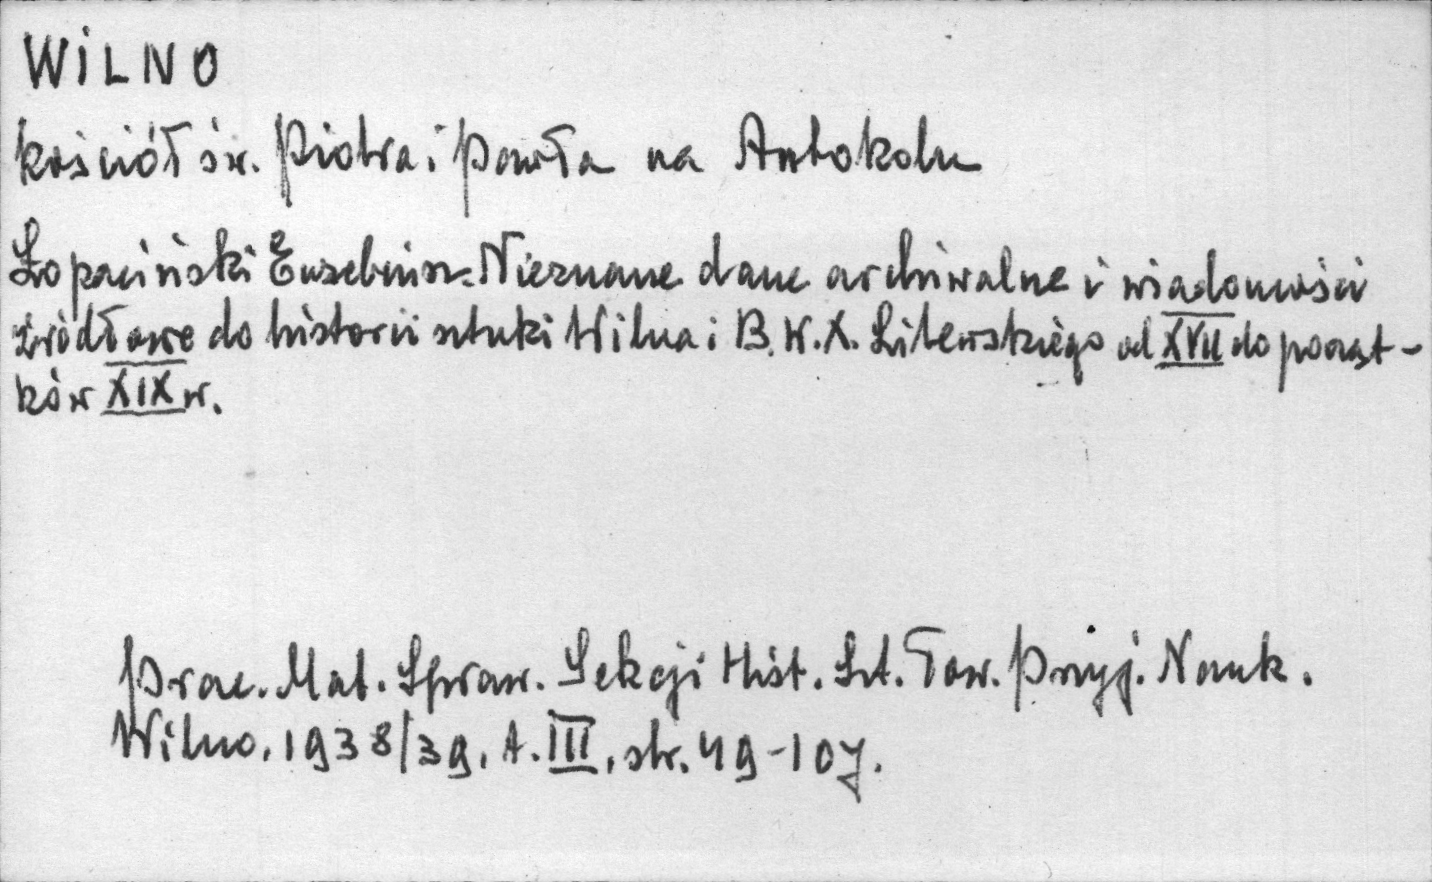 WILNO
kościół św. Piotra i Pawła na Antokolu
Łopaciński Euzebiusz - Nieznane dane archiwalne i wiadomości
źródłowe do historii sztuki Wilna i B. W. X. Litewskiego od XVII do począt-
ków XIX w.
Prac. Mat. Spraw. Sekcji Hist. Szt. Tow. Przyj. Nauk.
Wilno, 1938/39, t. III, str. 49-107.